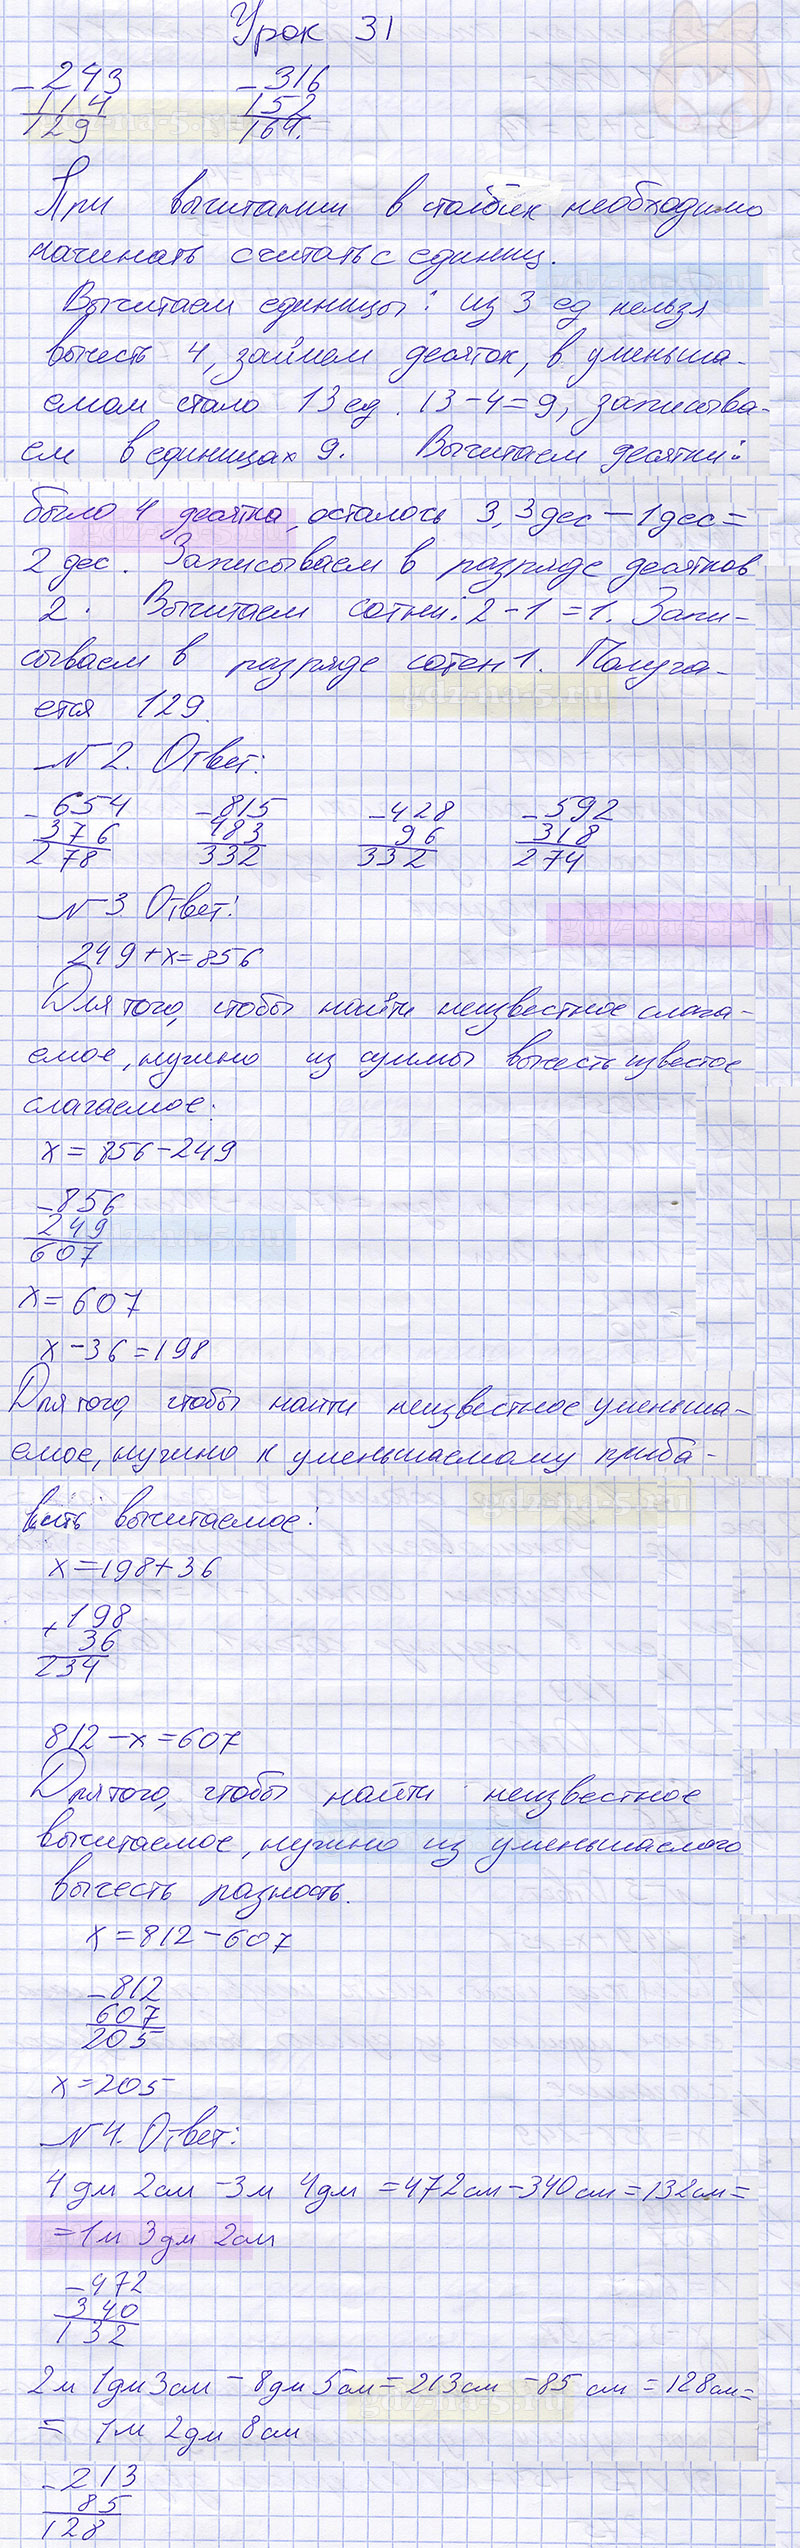 Урок 31
- 243 - 316
114 152
129 164.
При вычитании в столбик необходимо
начинать считать с единиц.
Вычитаем единицы: из 3 ед нельзя
вычесть 4, займем десяток, в уменьша-
емом стало 13 ед. 13-4=9, записыва-
ем в единицах 9. Вычитаем десятки:
было 4 десятка, осталось 3, 3 дес - 1 дес =
2 дес. Записываем в разряде десятков
2. Вычитаем сотни: 2-1=1. Запи-
сываем в разряде сотен 1. Получа-
ется 129.
N 2. Ответ:
- 654 - 815 - 428 - 592
376 483 96 318
278 332 332 274
N 3 Ответ:
249+x=856
Для того, чтобы найти неизвестное слага-
емое, нужно из суммы вычесть известое
слагаемое:
x = 856-249
- 856
249
607
x = 607
x-36=198
Для того, чтобы найти неизвестное уменьша-
емое, нужно к уменьшаемому приба-
вить вычитаемое:
x=198+36
+ 198
36
234
812-x=607
Для того, чтобы найти неизвестное
вычитаемое, нужно из уменьшаемого
вычесть разность.
x=812-607
- 812
607
205
x=205
N 4. Ответ:
4 дм 2 см - 3 м 4 дм = 472 см - 340 см = 132 см =
= 1 м 3 дм 2 см
- 472
340
132
2 м 1 дм 3 см - 8 дм 5 см = 213 см - 85 см = 128 см =
= 1 м 2 дм 8 см
- 213
85
128